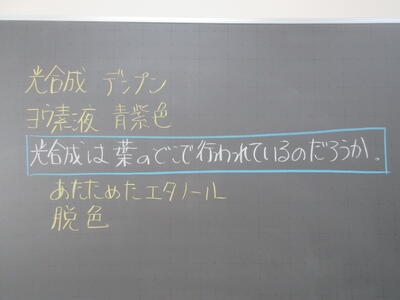 光合成 デンプン
ヨウ素液 青紫色
光合成は葉のどこで行われているのだろうか。
あたためたエタノール
脱色